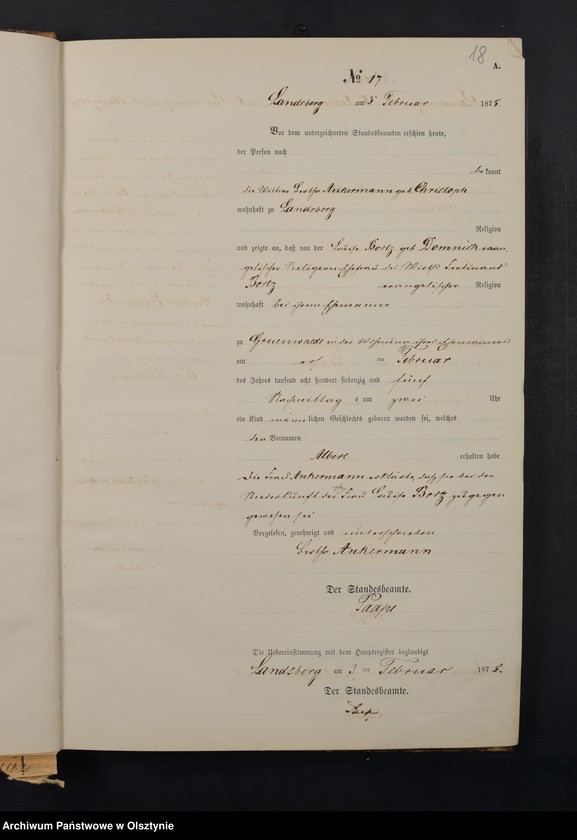 18
A.
№ 17
Landsberg am 3 Februar 1875
Vor dem unterzeichneten Standesbeamten erschien heute,
der Person nach
bekannt
die Ankermann geb Christoph
wohnhaft zu Landsberg
Religion
und zeigte an, daß von der Louise Bortz geb Domnick evan-
gelischer Religion Ehefrau des Wirths Ferdinand
Bortz evangelischer Religion
wohnhaft bei ihrem Ehemanne
zu Gruenwalde in der Wohnung ihres Ehemannes
am im Februar
des Jahres tausend acht hundert siebenzig und fünf
Nachmittags um zwei Uhr
ein Kind männlichen Geschlechts geboren worden sei, welches
den Vornamen
Albert erhalten habe
Die Frau Ankermann erklärte, daß sie bei der
Niederkunft der Frau Louise Bortz zugegen
gewesen sei
Vorgelesen, genehmigt und unterschrieben
Ankermann
Der Standesbeamte.
Die Uebereinstimmung mit dem Hauptregister beglaubigt
Landsberg am 3 ten Februar 1875.
Der Standesbeamte.
Archiwum Państwowe w Olsztynie